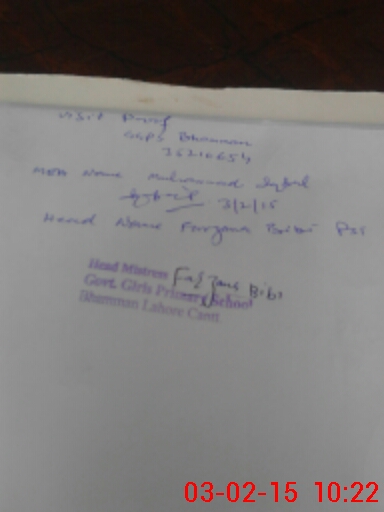 Visit Proof
GGPS Bhamman
35210654
MEA Name Muhammad Iqbal
3/2/15
Head Name Farzana Bibi PST
Head Mistress Farzana Bibi
Govt. Girls Primary School
Bhamman Lahore Cantt
03-02-15 10:22